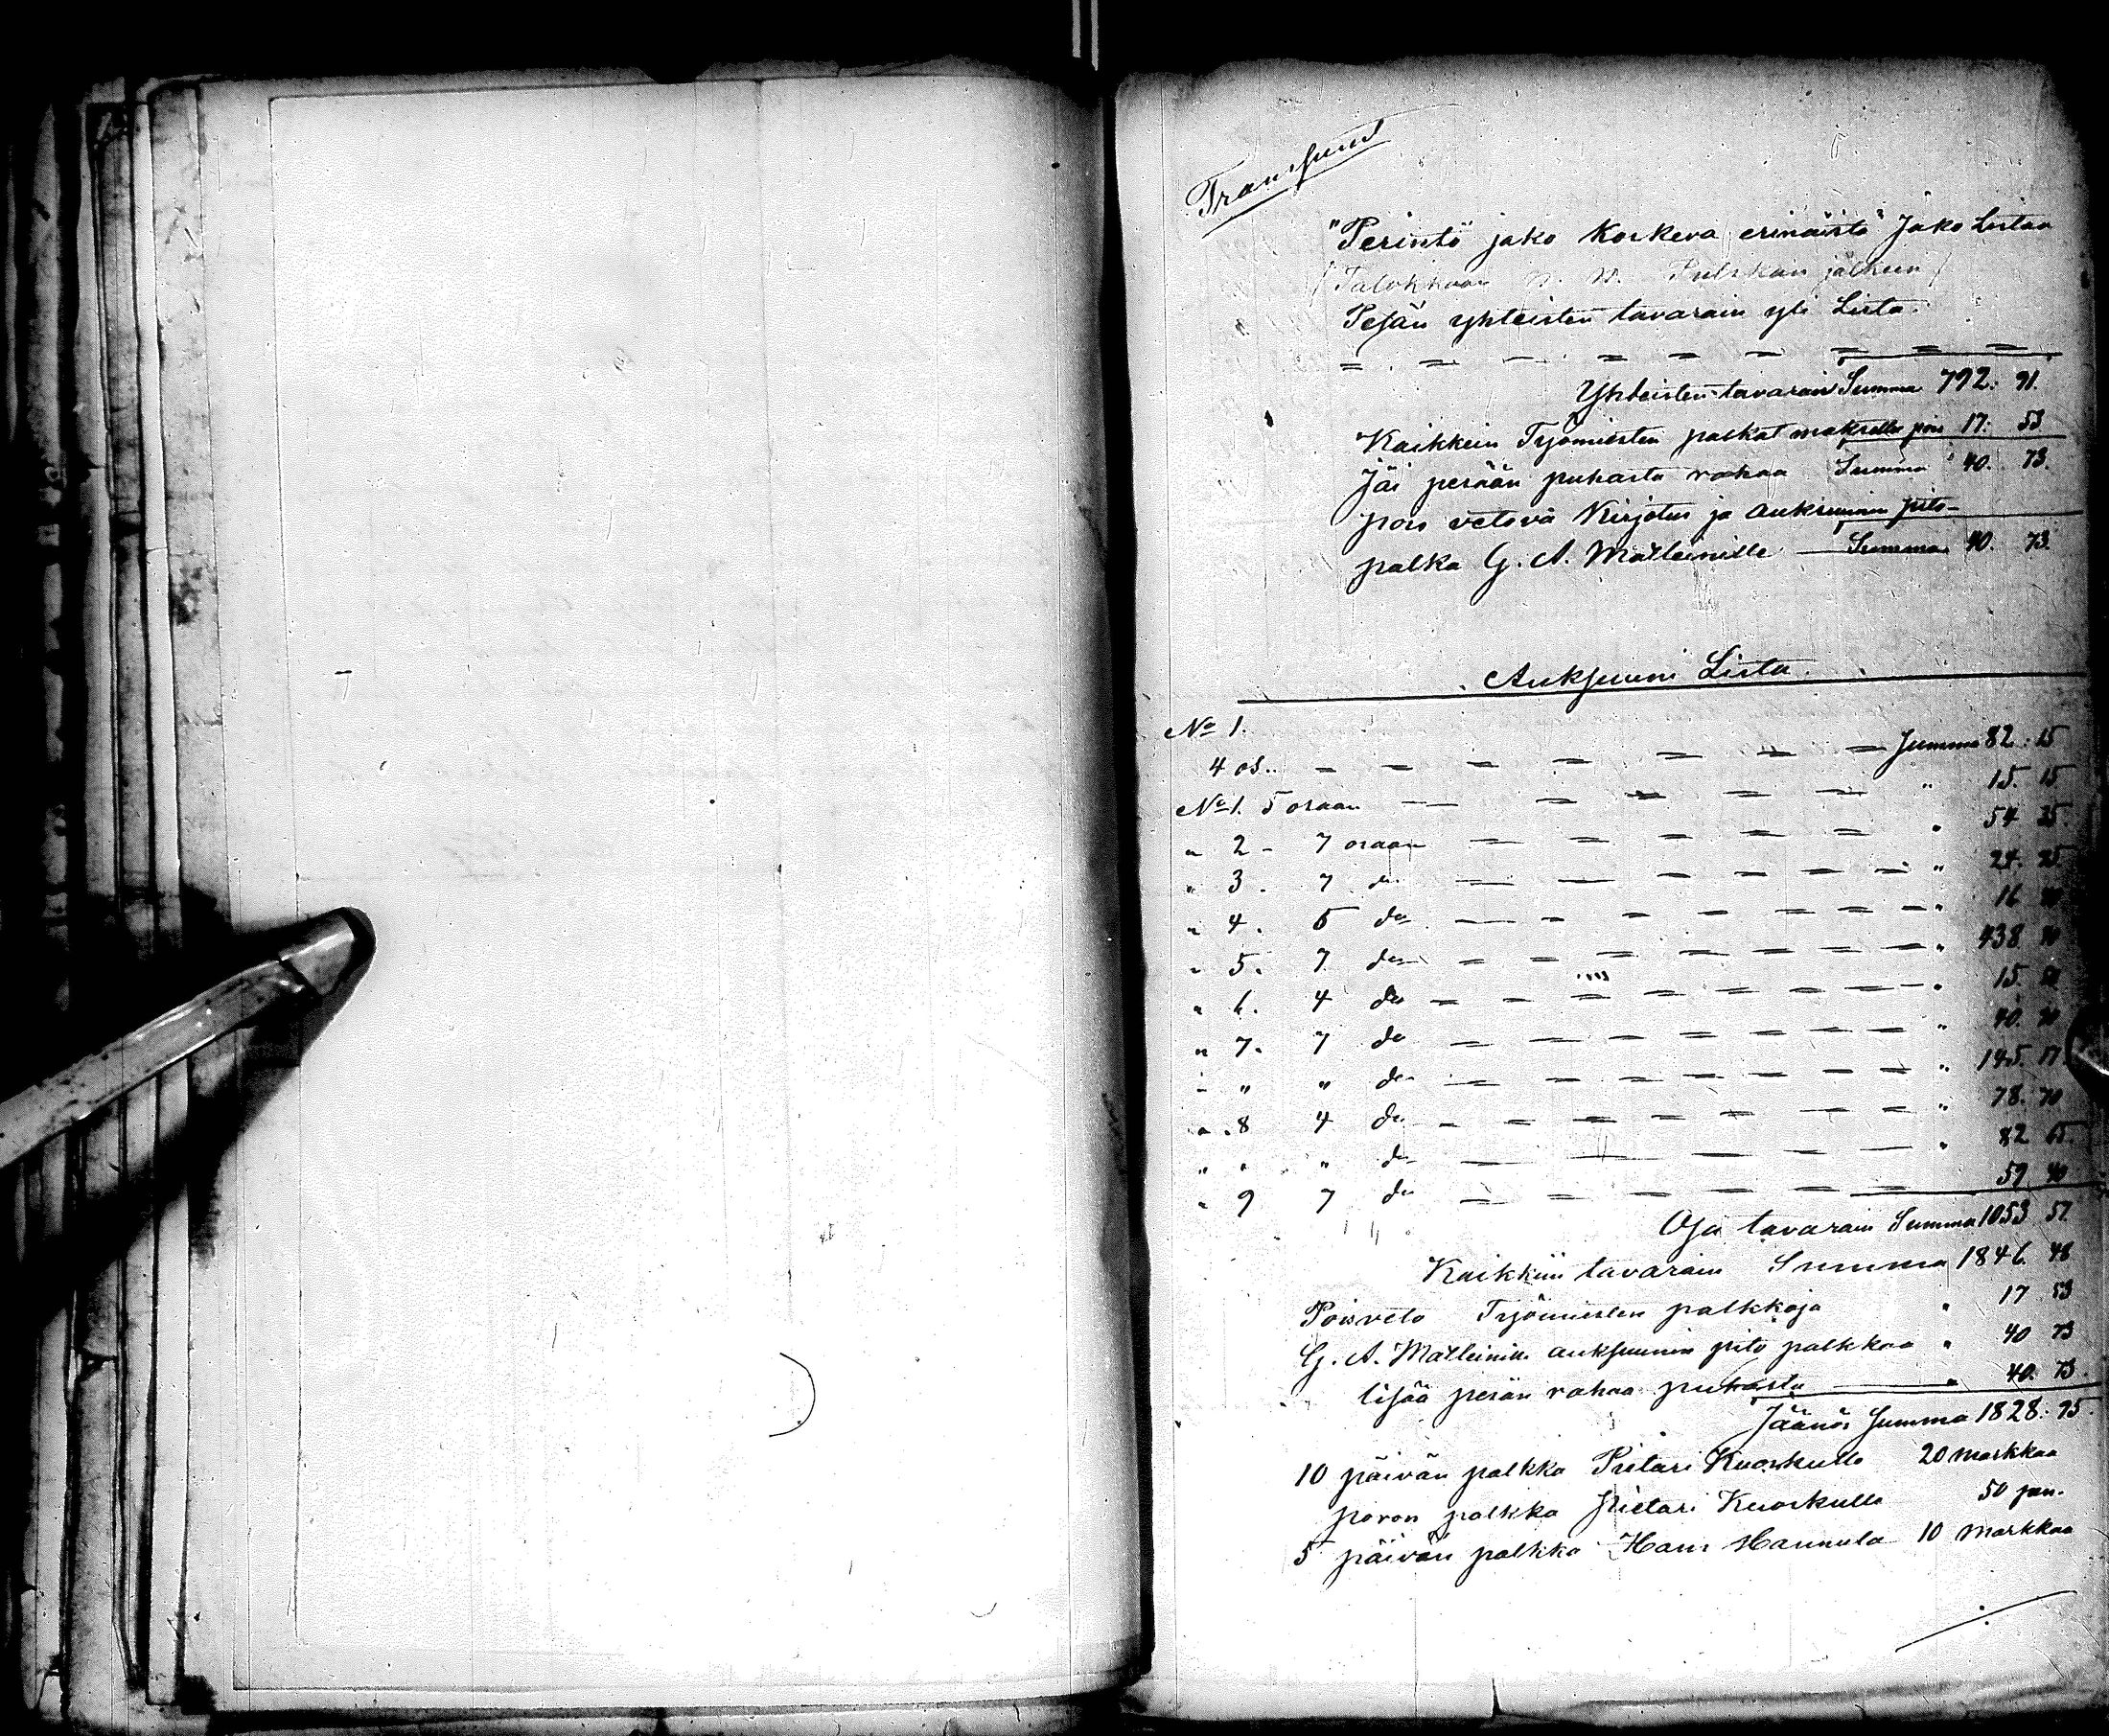 Transsumt
"Perintö jako Koskeva erinäistä" Jako Listaa
/Talokkaan jälkeen/
Pesän yhteisten tavarain yli Lista.
Yhteisten tavarain Summa 792: 91.
Kaikkein Työmiesten palkat maksettu pois 17: 53
Jäi perään puhasta rahaa Summa 40. 73.
pois vetävä Kirjotus ja auksuunin pito-
palka G. A. Matleinille — Summa 40. 73.
Auksuuni Lista.
No 1.
4 os.. — — — — — — Summa 82: 15
No 1. 5 osaan — — — — — " 15. 15
" 2 - 7 osaan — — — — — " 54 25.
" 3. 7 do — — — — — " 24. 25
" 4. 5 do — — — — — " 16
" 5. 7 do — — — — — " 438.
" 6. 4 do — — — — — " 15.
" 7. 7 do — — — — — " 40.
" " " do — — — — — " 145. 17
" . 8 4 do — — — — — " 78. 70
" " " do — — — — " 82 65.
" 9 7 do — — — — — 59 40
Osa tavarain Summa 1053 57
Kaikkein tavarain Summa 1846. 48
Poisveto Työmiesten palkkoja " 17 53
G. A. Matleinin auksuunin pito palkkaa " 40 73
lisää perän rahaa puhasta — " 40. 73.
Jäänös Summa 1828: 95.
10 päivän palkka Pietari Kuoskulle 20 markkaa
poron palkka Pietari Kuoskulle 50 pen.
5 päivän palkka Hans Hannula 10 markkaa